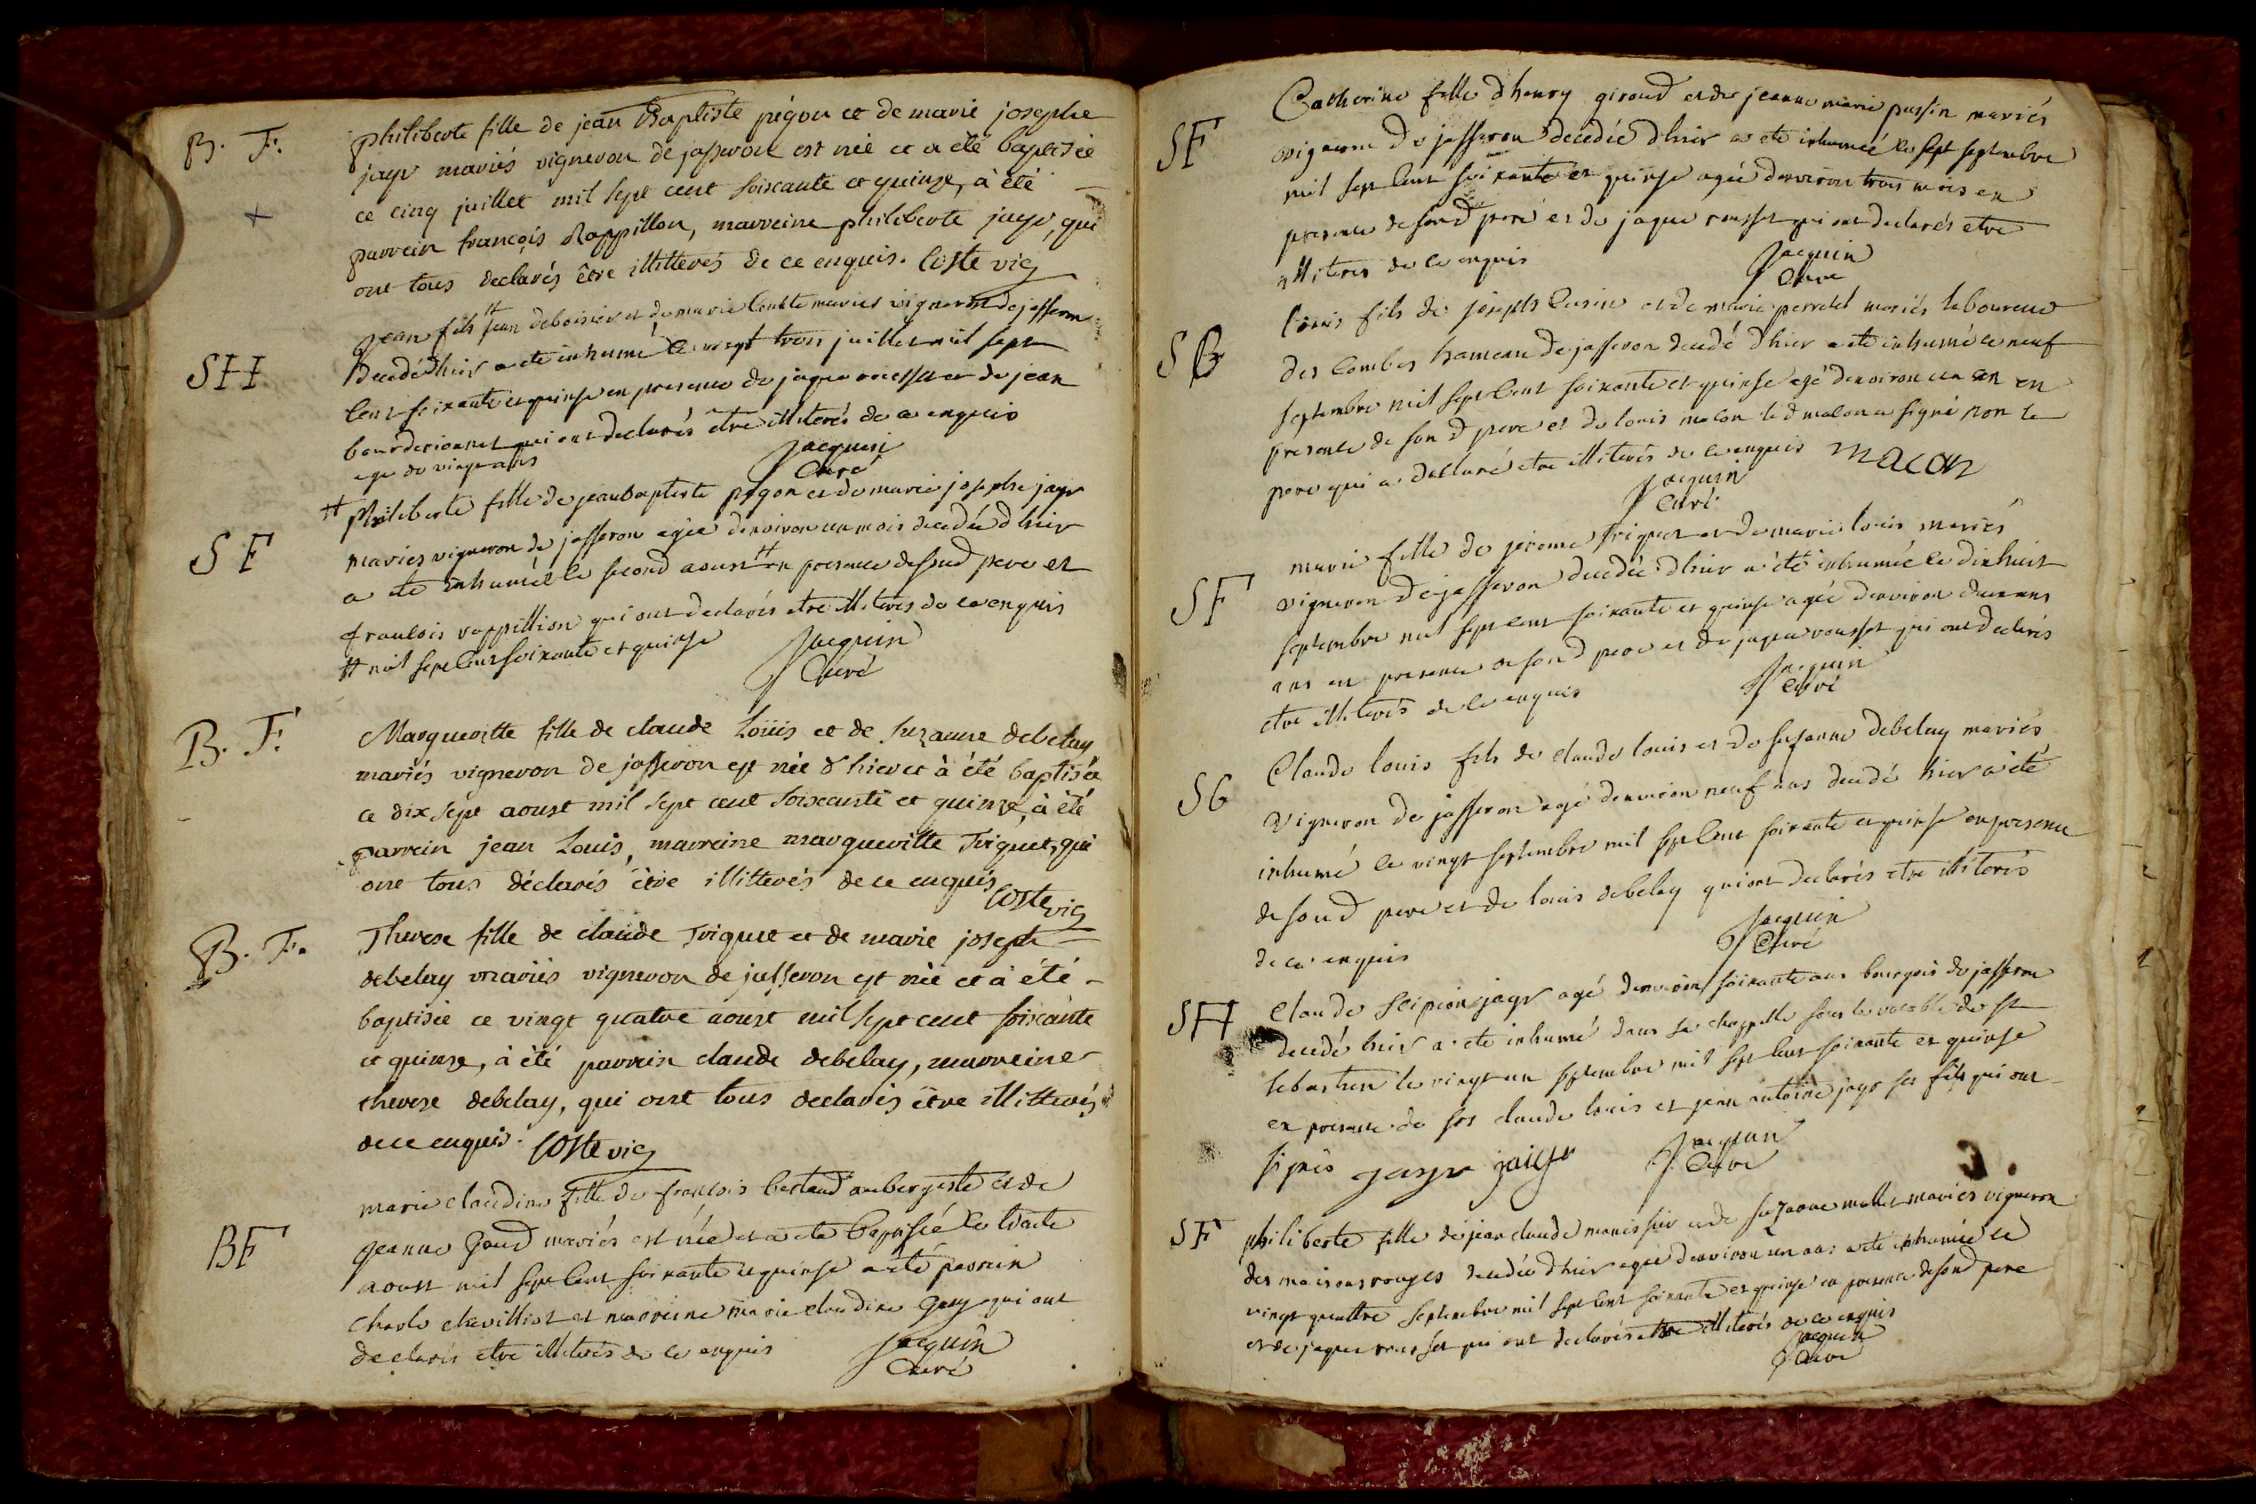 B. F.
philiberte fille de jean Baptiste pigon et de marie josephe
jayr mariés vigneron de jasseron est née et a été baptisée
ce cinq juillet mil sept cent soixcante et quinze, à été
parrein françois Rappillon, marreine philiberte jayr, qui
ont tous declarés être illitterés de ce enquis. Coste vic
SH
jean fils # jean deboisier et de marie mariés vigneron de jasseron
decedé dhier a ete inhumé le vingt trois juillet mil sept
cent soixante et quinse en presence de jaque et de jean
bourderionnet qui ont declarés etre illiterés de ce enquis
age de vingt ans
jacquin
Curé
SF
# philiberte fille de jean baptiste pigon et de marie josephe jayr
mariés vigneron de jasseron agée denviron un mois decedée dhier
a ete inhumée le second aoust # en presence de son d pere et
francois rappillion qui ont declarés etre illiterés de ce enquis
# mil sept cent soixante et quinse
jacquin
Curé
B. F.
Margueritte fille de claude Loüis et de suzanne debelay
mariés vigneron de jasseron est née d'hier et à été baptisée
ce dix sept aoust mil sept cent soixcante et quinze, à été
parrein jean Louis, marreine margueritte Triquet, qui
ont tous déclarés être illitterés de ce enquis
Coste vic
B. F.
Therese fille de claude Triquet et de marie joseph
debelay mariés vigneron de jasseron est née et à été
baptisée ce vingt quatre aoust mil sept cent soixcante
et quinze, à été parrein claude debelay, marreine
therese debelay, qui ont tous declarés être illitterés
de ce enquis. Coste vic
BF
marie claudine fille de françois bertaud aubergiste et de
jeanne mariés est née et a ete baptisée le trante
aoust mil sept cent soixante et quinse a été parrein
charle chevilliot et marreine marie claudine qui ont
declarés etre illiterés de ce enquis
jacquin
Curé
SF
Catherine fille dhenry giraud et de jeanne marie mariés
vigneron de jasseron decedée dhier a ete inhumée le sept septembre
mil sept cent soixante et quinse agée denviron trois mois en
presence de son d pere et de jaque rousset qui ont declarés etre
illiterés de ce enquis
jacquin
Curé
SG
louis fils de joseph et de marie perrodet mariés laboureur
des combes hameau de jasseron decedé dhier a ete inhumé le neuf
septembre mil sept cent soixante et quinse agé denviron un an en
presence de son d pere et de louis macon le d macon a signé non le
pere qui a declaré etre illiterés de ce enquis macon
jacquin
Curé
SF
marie fille de jerome triquet et de marie louis mariés
vigneron de jasseron decedée dhier a été inhumée le dixhuit
septembre mil sept cent soixante et quinse agée denviron deux ans
ans en presence de son d pere et de jaque rousset qui ont declarés
etre illiterés de ce enquis
jacquin
Curé
SG
Claude louis fils de claude louis et de susanne debelay mariés
vigneron de jasseron agé denviron neuf ans decedé hier a été
inhumé le vingt septembre mil sept cent soixante et quinse en presence
de son d pere et de louis debelay qui ont declarés etre illiterés
de ce enquis
jacquin
Curé
SH
claude scipion jayr agé denviron soixante ans bourgois de jasseron
decedé hier a ete inhumé dans sa chappelle sous le vocable de st
sebastien le vingt un septembre mil sept cent soixante et quinse
en presence de ses claude louis et jean antoine jayr ses fils qui ont
signés jayr jaiyr
jacquin
Curé
SF
philiberte fille de jean claude et de suzanne mariés vigneron
des maisons rouges decedée dhier agée denviron un an a ete inhumée le
vingt quattre septembre mil sept cent soixante et quinse en presence de son d pere
et de jaque rousset qui ont declarés etre illiterés de ce enquis
jacquin
Curé